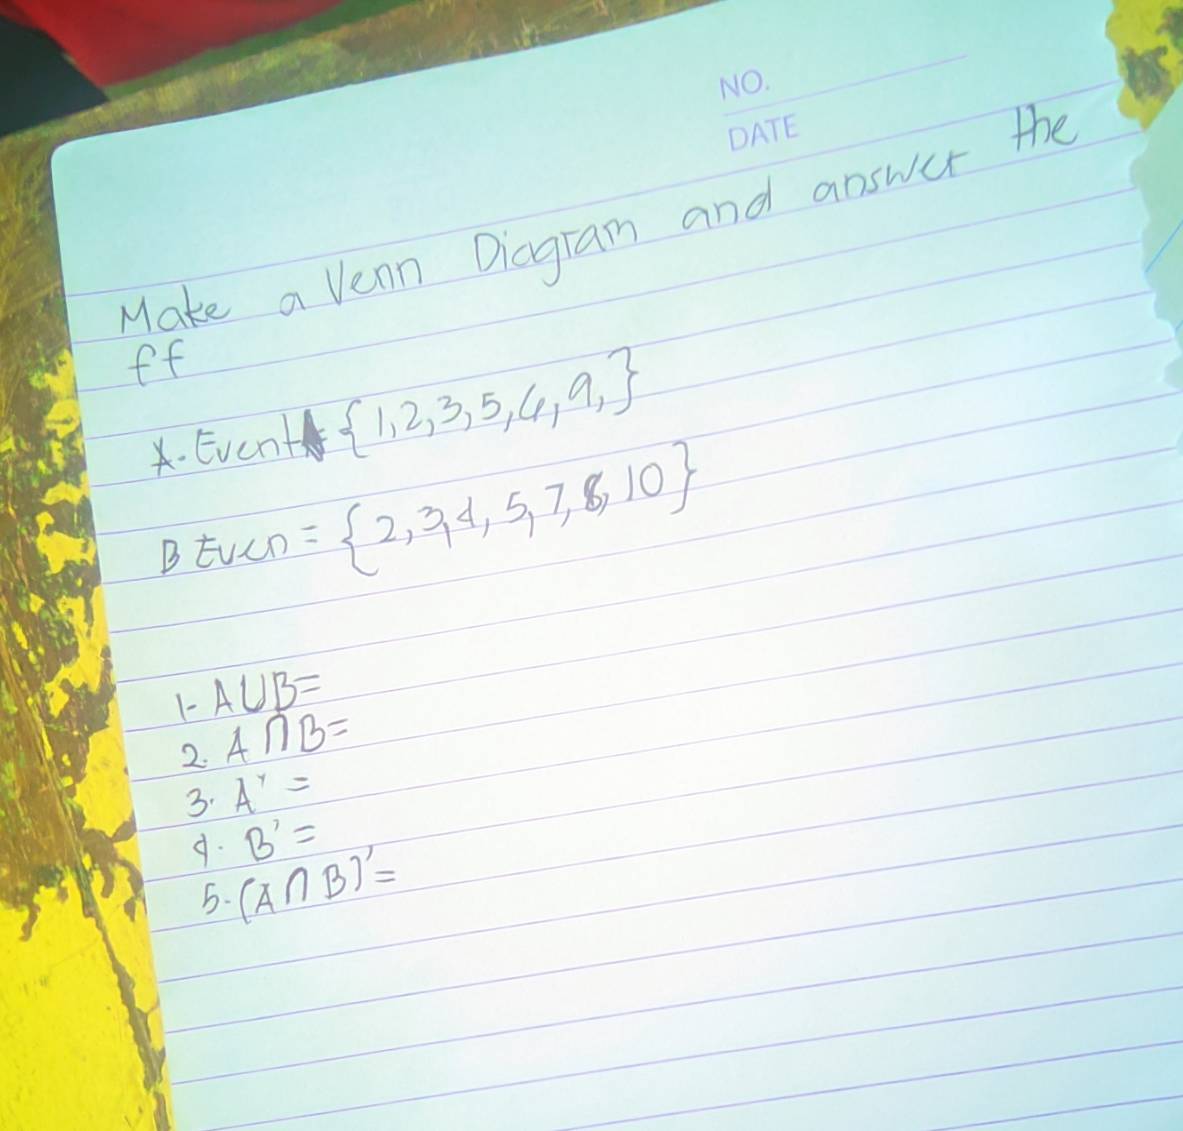 NO.
DATE
Make a Venn Diagram and answer the
ff
A. Event A = {1,2,3,5,6,9,}
B Even = {2,3,4,5,7,8,10}
1- A∪B=
2. A∩B=
3. A' =
4. B' =
5. (A∩B)' =